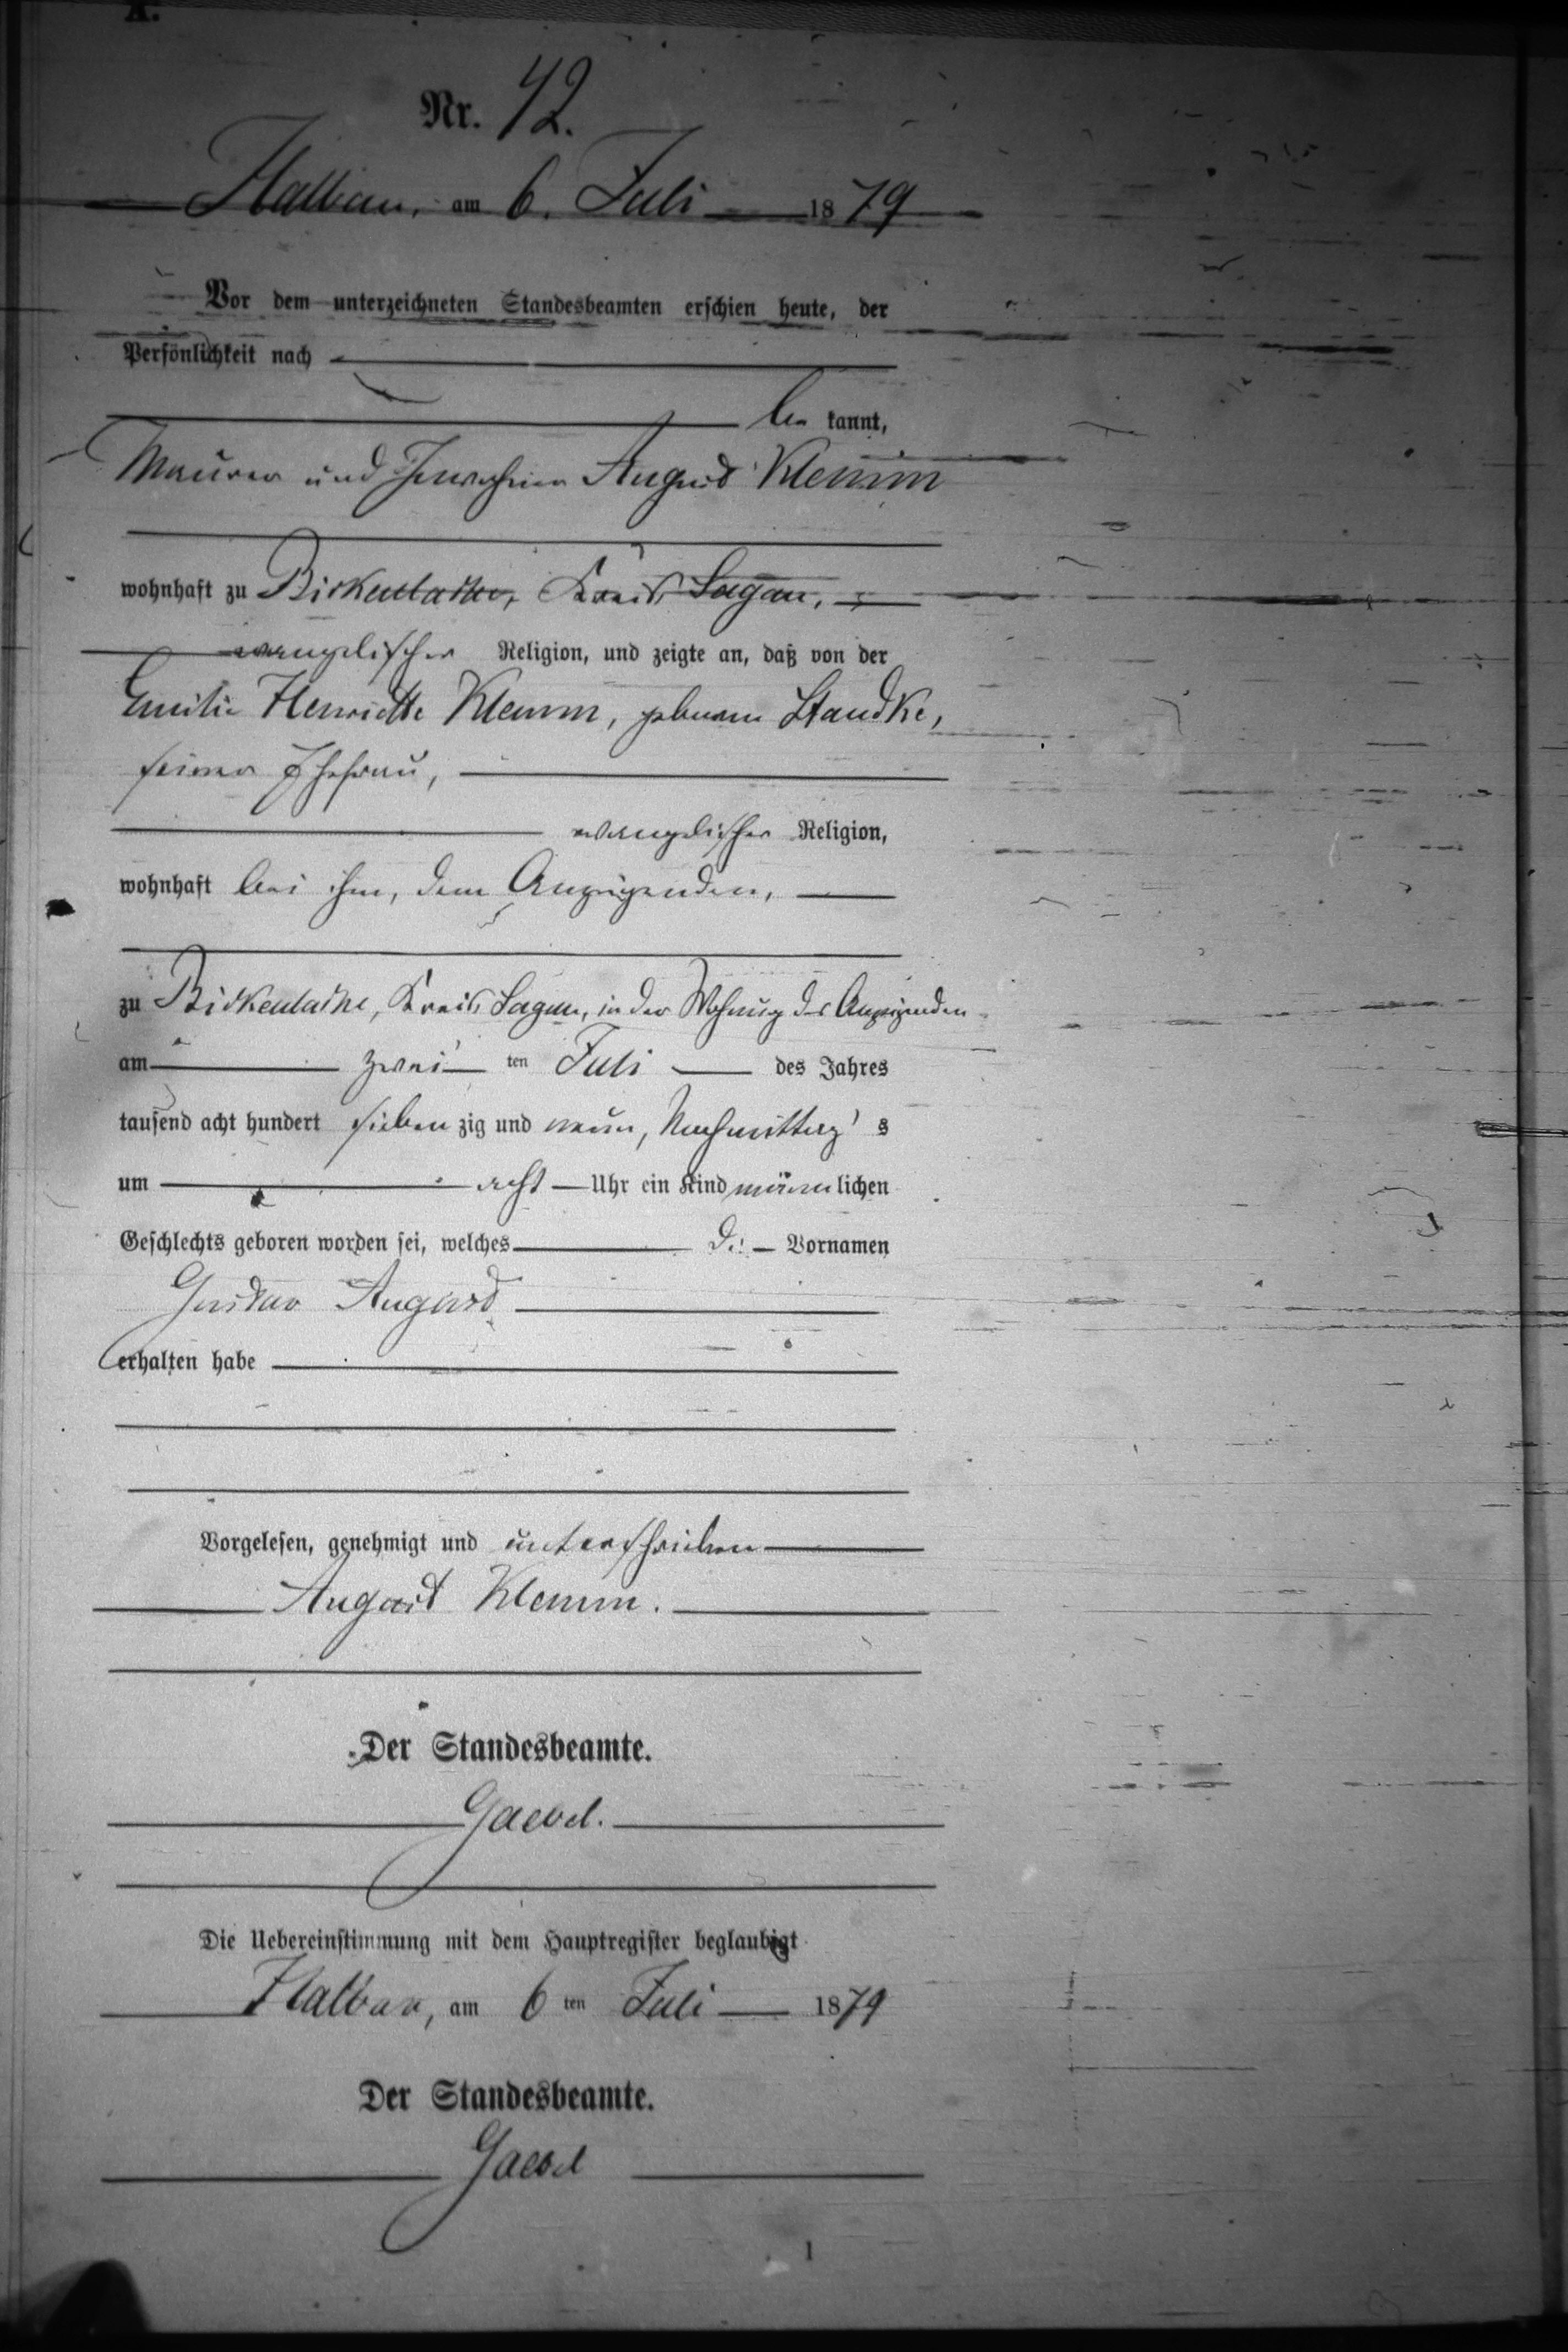 A.
Nr. 42.
Halbau, am 6. Juli 1879
Vor dem unterzeichneten Standesbeamten erschien heute, der
Persönlichkeit nach
be kannt,
Maurer und Inwohner August Klemm
wohnhaft zu Birkenlache, Kreis Sagan,
evangelischer Religion, und zeigte an, daß von der
Emilie Henriette Klemm, geborene Standke,
seiner Ehefrau,
evangelischer Religion,
wohnhaft bei ihm, dem Anzeigenden,
zu Birkenlache, Kreis Sagan, in der Wohnung des Anzeigenden
am zwei ten Juli des Jahres
tausend acht hundert sieben zig und neun, Nachmittag s
um acht Uhr ein Kind männlichen
Geschlechts geboren worden sei, welches die Vornamen
Gustav August
erhalten habe
Vorgelesen, genehmigt und unterschrieben
August Klemm.
Der Standesbeamte.
Gaebel.
Die Uebereinstimmung mit dem Hauptregister beglaubigt
Halbau, am 6 ten Juli 1879
Der Standesbeamte.
Gaebel